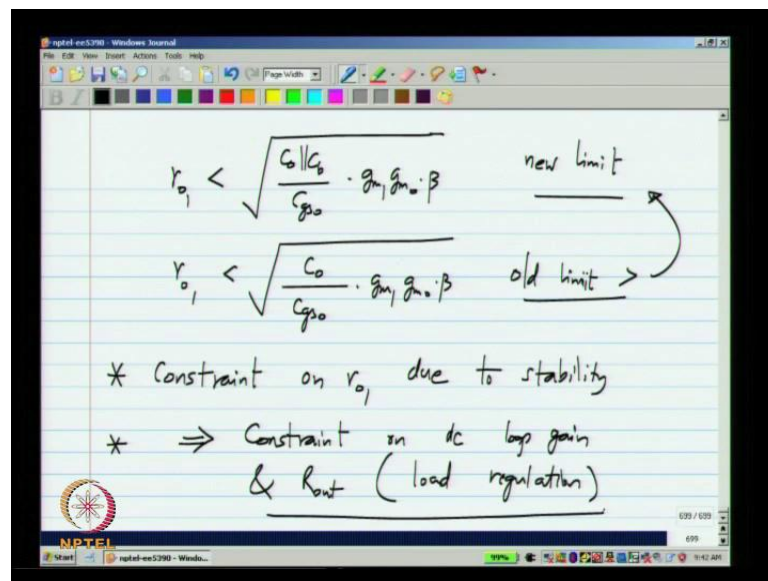 nptel-ee5390 - Windows Journal
File Edit View Insert Actions Tools Help
Page Width
B I
r_{o_1} < \sqrt{\frac{C_o || C_b}{C_{gs_o}} \cdot g_{m_1} g_{m_o} \cdot β} new limit
r_{o_1} < \sqrt{\frac{C_o}{C_{gs_o}} \cdot g_{m_1} g_{m_o} \cdot β} old limit >
* Constraint on r_{o_1} due to stability
* ⇒ Constraint on dc loop gain
& Rout (load regulation)
699 / 699
699
NPTEL
Start nptel-ee5390 - Windo... 99% 9:42 AM